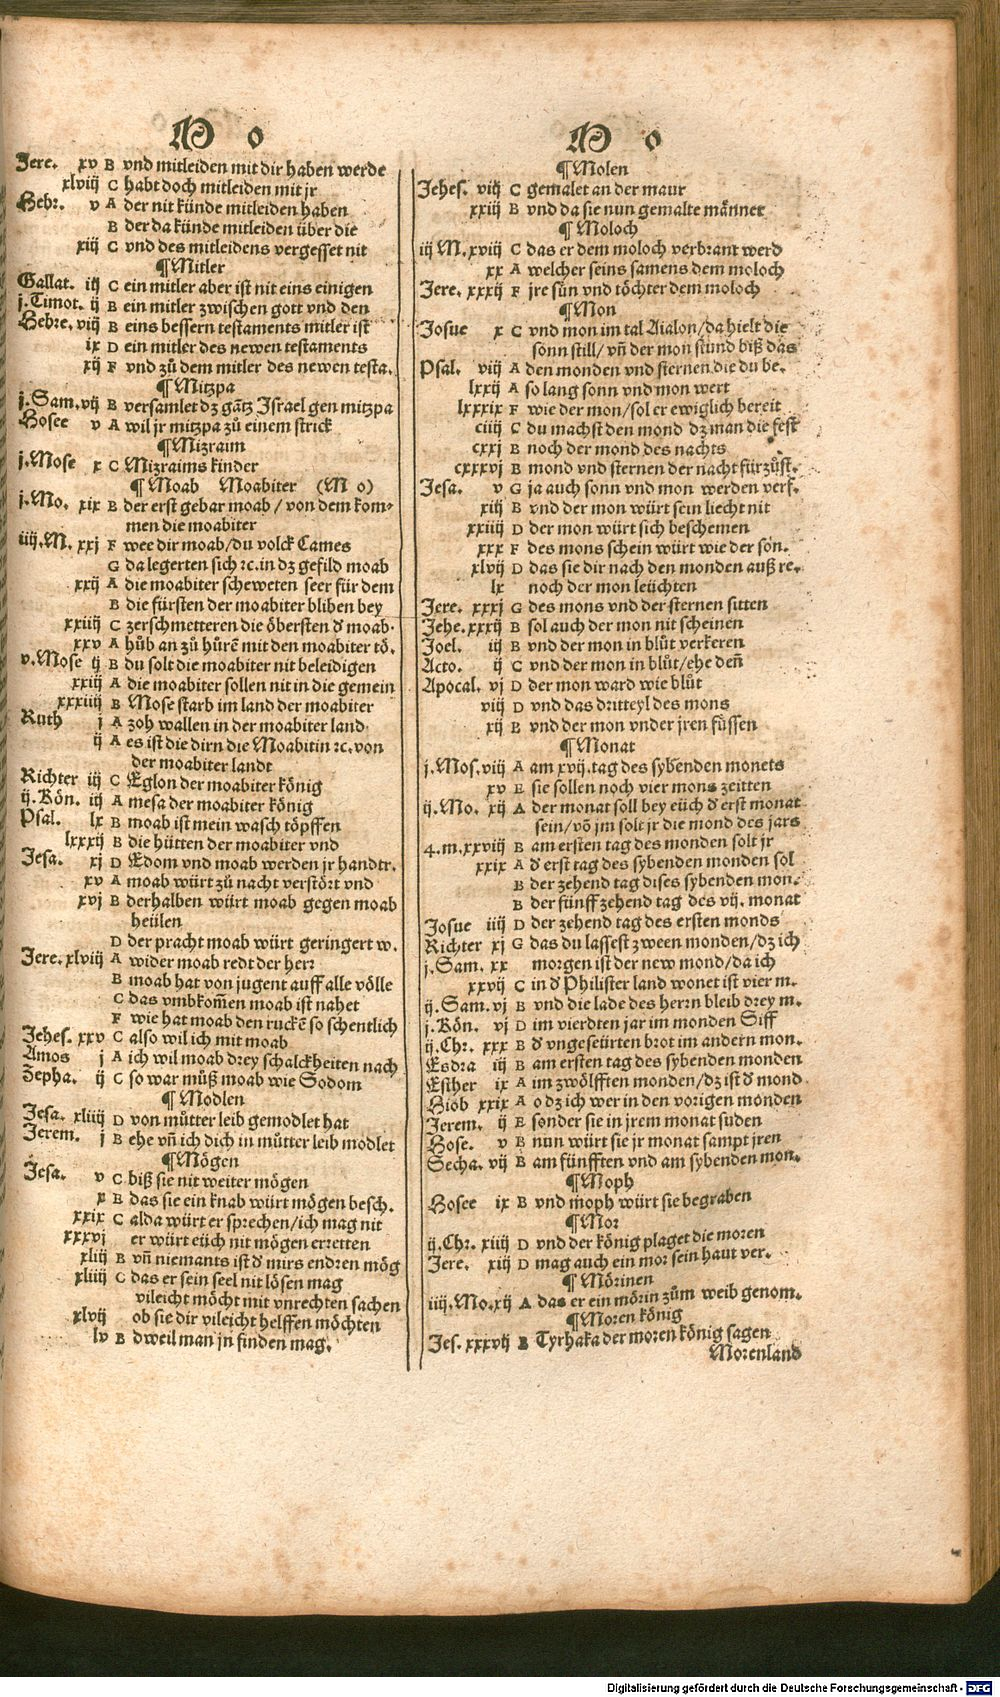 M o
Jere. xv B vnd mitleiden mit dir haben werde
xlviij C habt doch mitleiden mit jr
Hebr. v A der nit künde mitleiden haben
B der da künde mitleiden über die
xiij C vnd des mitleidens vergesset nit
¶ Mitler
Gallat. iij C ein mitler aber ist nit eins einigen
j. Timot. ij B ein mitler zwischen gott vnd den
Hebre. viij B eins bessern testaments mitler ist
ix D ein mitler des newen testaments
xij F vnd zů dem mitler des newen testa.
¶ Mitzpa
j. Sam. vij B versamlet dz gãtz Israel gen mitzpa
Hosee v A wil jr mitzpa zů einem strick
¶ Mizraim
j. Mose x C Mizraims kinder
¶ Moab Moabiter (M o)
j. Mo. xix B der erst gebar moab / von dem kom⸗
men die moabiter
iiij. M. xxj F wee dir moab / du volck Cames
G da legerten sich ꝛc. in dz gefild moab
xxij A die moabiter scheweten seer für dem
B die fürsten der moabiter bliben bey
xxiiij C zerschmetteren die öbersten d̓ moab.
xxv A hůb an zů hürẽ mit den moabiter tö.
v. Mose ij B du solt die moabiter nit beleidigen
xxiij A die moabiter sollen nit in die gemein
xxxiiij B Mose starb im land der moabiter
Ruth j A zoh wallen in der moabiter land
ij A es ist die dirn die Moabitin ꝛc. von
der moabiter landt
Richter iij C Eglon der moabiter könig
ij. Kön. iij A mesa der moabiter könig
Psal. lx B moab ist mein wasch töpffen
lxxxij B die hütten der moabiter vnd
Jesa. xj D Edom vnd moab werden jr handtr.
xv A moab würt zů nacht verstört vnd
xvj B derhalben würt moab gegen moab
heülen
D der pracht moab würt geringert w.
Jere. xlviij A wider moab redt der herr
B moab hat von jugent auff alle völle
C das vmbkom̃en moab ist nahet
F wie hat moab den ruckẽ so schentlich
Jehes. xxv C also wil ich mit moab
Amos j A ich wil moab drey schalckheiten nach
Zepha. ij C so war můß moab wie Sodom
¶ Modlen
Jesa. xliiij D von můtter leib gemodlet hat
Jerem. j B ehe vñ ich dich in můtter leib modlet
¶ Mögen
Jesa. v C biß sie nit weiter mögen
x B das sie ein knab würt mögen besch.
xxix C alda würt er sprechen / ich mag nit
xxxvj er würt eüch nit mögen erretten
xliij B vñ niemants ist d̓ mirs endren mög
xliiij C das er sein seel nit lösen mag
vileicht möcht mit vnrechten sachen
xlvij ob sie dir vileicht helffen möchten
lv B dweil man jn finden mag.
M o
¶ Molen
Jehes. viij C gemalet an der maur
xxiij B vnd da sie nun gemalte männer
¶ Moloch
iij M. xviij C das er dem moloch verbrant werd
xx A welcher seins samens dem moloch
Jere. xxxij F jre sün vnd töchter dem moloch
¶ Mon
Josue x C vnd mon im tal Aialon / da hielt die
sonn still / vñ der mon stund biß das
Psal. viij A den monden vnd sternen die du be.
lxxij A so lang sonn vnd mon wert
lxxxix F wie der mon / sol er ewiglich bereit
ciiij C du machst den mond dz man die fest
cxxj B noch der mond des nachts
cxxxvj B mond vnd sternen der nacht fürzůst.
Jesa. v G ja auch sonn vnd mon werden verf.
xiij B vnd der mon würt sein liecht nit
xxiiij D der mon würt sich beschemen
xxx F des mons schein würt wie der son.
xlvij D das sie dir nach den monden auß re.
lx noch der mon leüchten
Jere. xxxj G des mons vnd der sternen sitten
Jehe. xxxij B sol auch der mon nit scheinen
Joel. iij B vnd der mon in blůt verkeren
Acto. ij C vnd der mon in blůt / ehe deñ
Apocal. vj D der mon ward wie blůt
viij D vnd das dritteyl des mons
xij B vnd der mon vnder jren füssen
¶ Monat
j. Mos. viij A am xvij. tag des sybenden monets
xv E sie sollen noch vier mons zeitten
ij. Mo. xij A der monat soll bey eüch d̓ erst monat
sein / võ jm solt jr die mond des jars
4. m. xxviij B am ersten tag des monden solt jr
xxix A d̓ erst tag des sybenden monden sol
B der zehend tag dises sybenden mon.
B der fünff zehend tag des vij. monat
Josue iiij D der zehend tag des ersten monds
Richter xj G das du lassest zween monden / dz ich
j. Sam. xx morgen ist der new mond / da ich
xxvij C in d̓ Philister land wonet ist vier m.
ij. Sam. vj B vnd die lade des herrn bleib drey m.
j. Kön. vj D im vierdten jar im monden Siff
ij. Chr. xxx B d̓ vngeseürten brot im andern mon.
Esdra iij B am ersten tag des sybenden monden
Esther ix A im zwölfften monden / dz ist d̓ mond
Hiob xxix A o dz ich wer in den vorigen monden
Jerem. ij E sonder sie in jrem monat suden
Hose. v B nun würt sie jr monat sampt jren
Secha. vij B am fünfften vnd am sybenden mon.
¶ Moph
Hosee ix B vnd moph würt sie begraben
¶ Mor
ij. Chr. xiiij D vnd der könig plaget die moren
Jere. xiij D mag auch ein mor sein haut ver.
¶ Mörinen
iiij. Mo. xij A das er ein mörin zům weib genom.
¶ Moren könig
Jes. xxxvij B Tyrhaka der moren könig sagen
Morenland
Digitalisierung gefördert durch die Deutsche Forschungsgemeinschaft - DFG